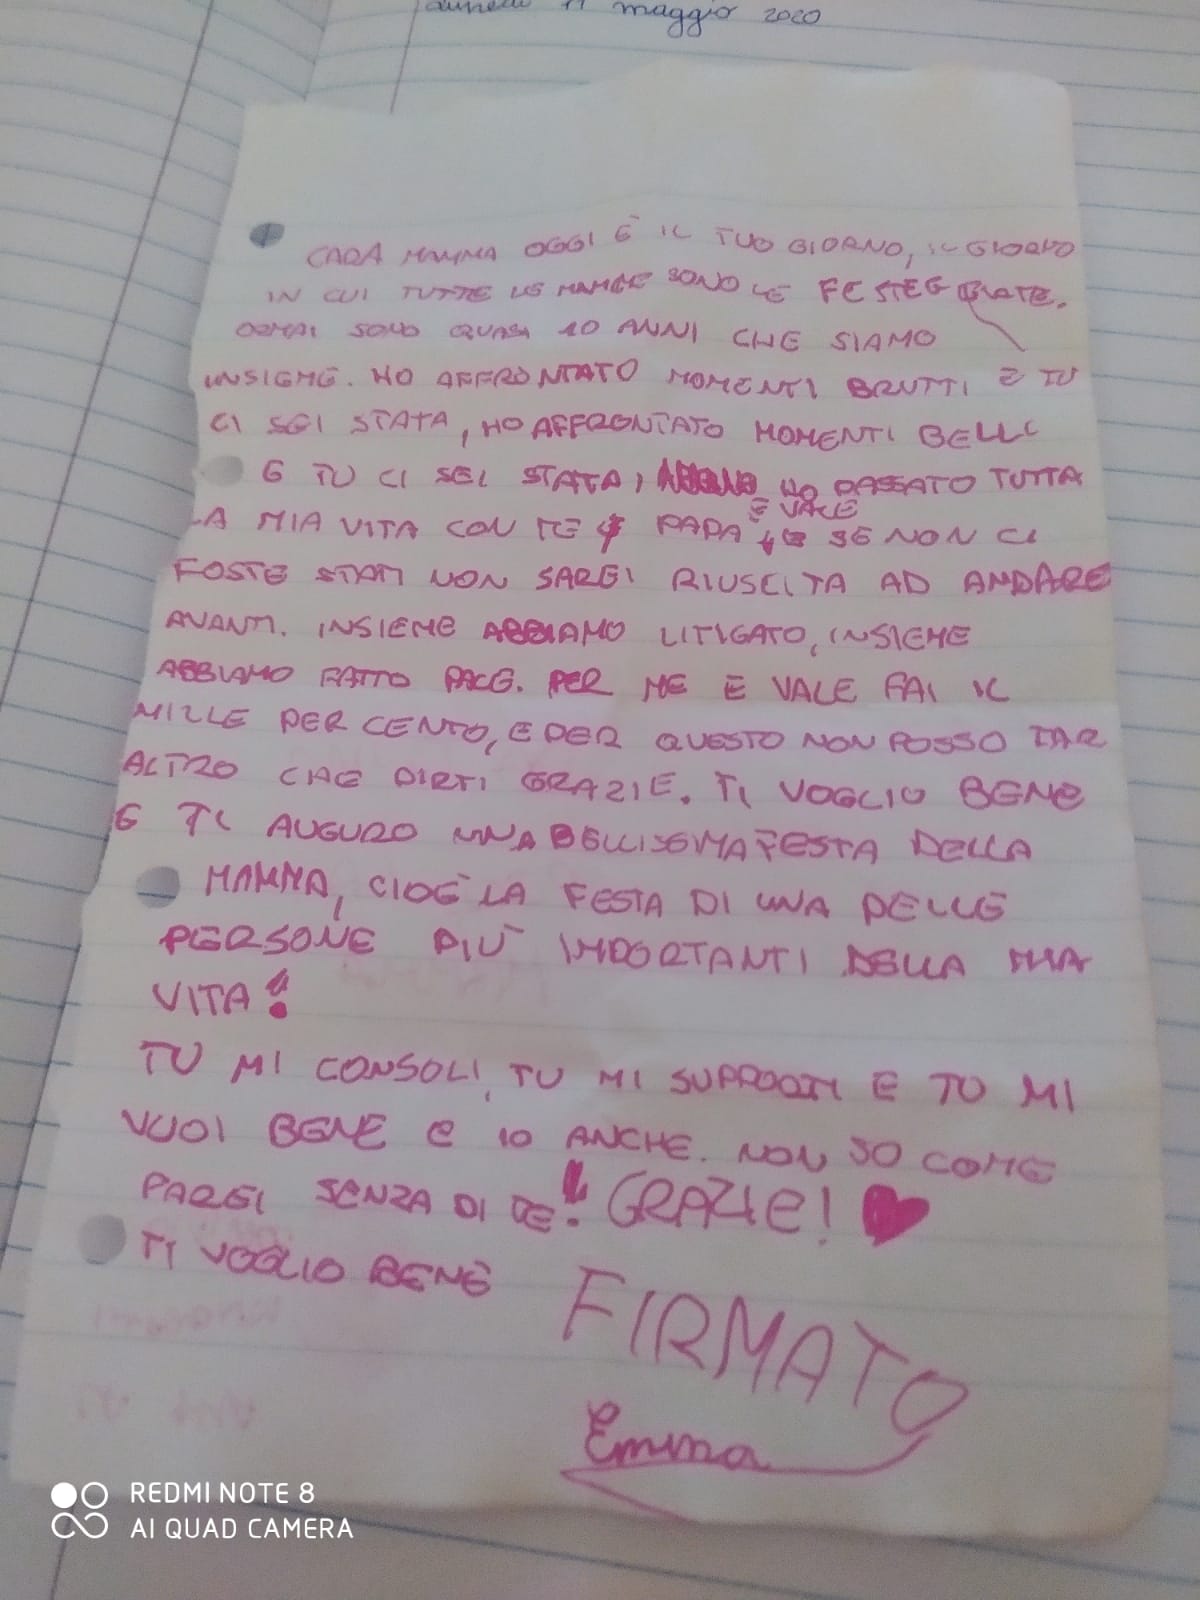 lunedì 11 maggio 2020
CARA MAMMA OGGI È IL TUO GIORNO, IL GIORNO
IN CUI TUTTE LE MAMME SONO LE FESTEGGIATE.
ORMAI SONO QUASI 10 ANNI CHE SIAMO
INSIEME. HO AFFRONTATO MOMENTI BRUTTI E TU
CI SEI STATA, HO AFFRONTATO MOMENTI BELLI
E TU CI SEI STATA, HO PASSATO TUTTA
E VALE
LA MIA VITA CON TE PAPA SE NON CI
FOSTE STATI NON SAREI RIUSCITA AD ANDARE
AVANTI. INSIEME ABBIAMO LITIGATO, INSIEME
ABBIAMO FATTO PACE. PER ME E VALE FAI IL
MILLE PER CENTO, E PER QUESTO NON POSSO FAR
ALTRO CHE DIRTI GRAZIE. TI VOGLIO BENE
E TI AUGURO UNA BELLISSIMA FESTA DELLA
MAMMA, CIOÈ LA FESTA DI UNA DELLE
PERSONE PIÙ IMPORTANTI DELLA MIA
VITA!
TU MI CONSOLI, TU MI SUPPORTI E TU MI
VUOI BENE E IO ANCHE. NON SO COME
FAREI SENZA DI TE! GRAZIE!
TI VOGLIO BENE
FIRMATO
Emma
REDMI NOTE 8
AI QUAD CAMERA